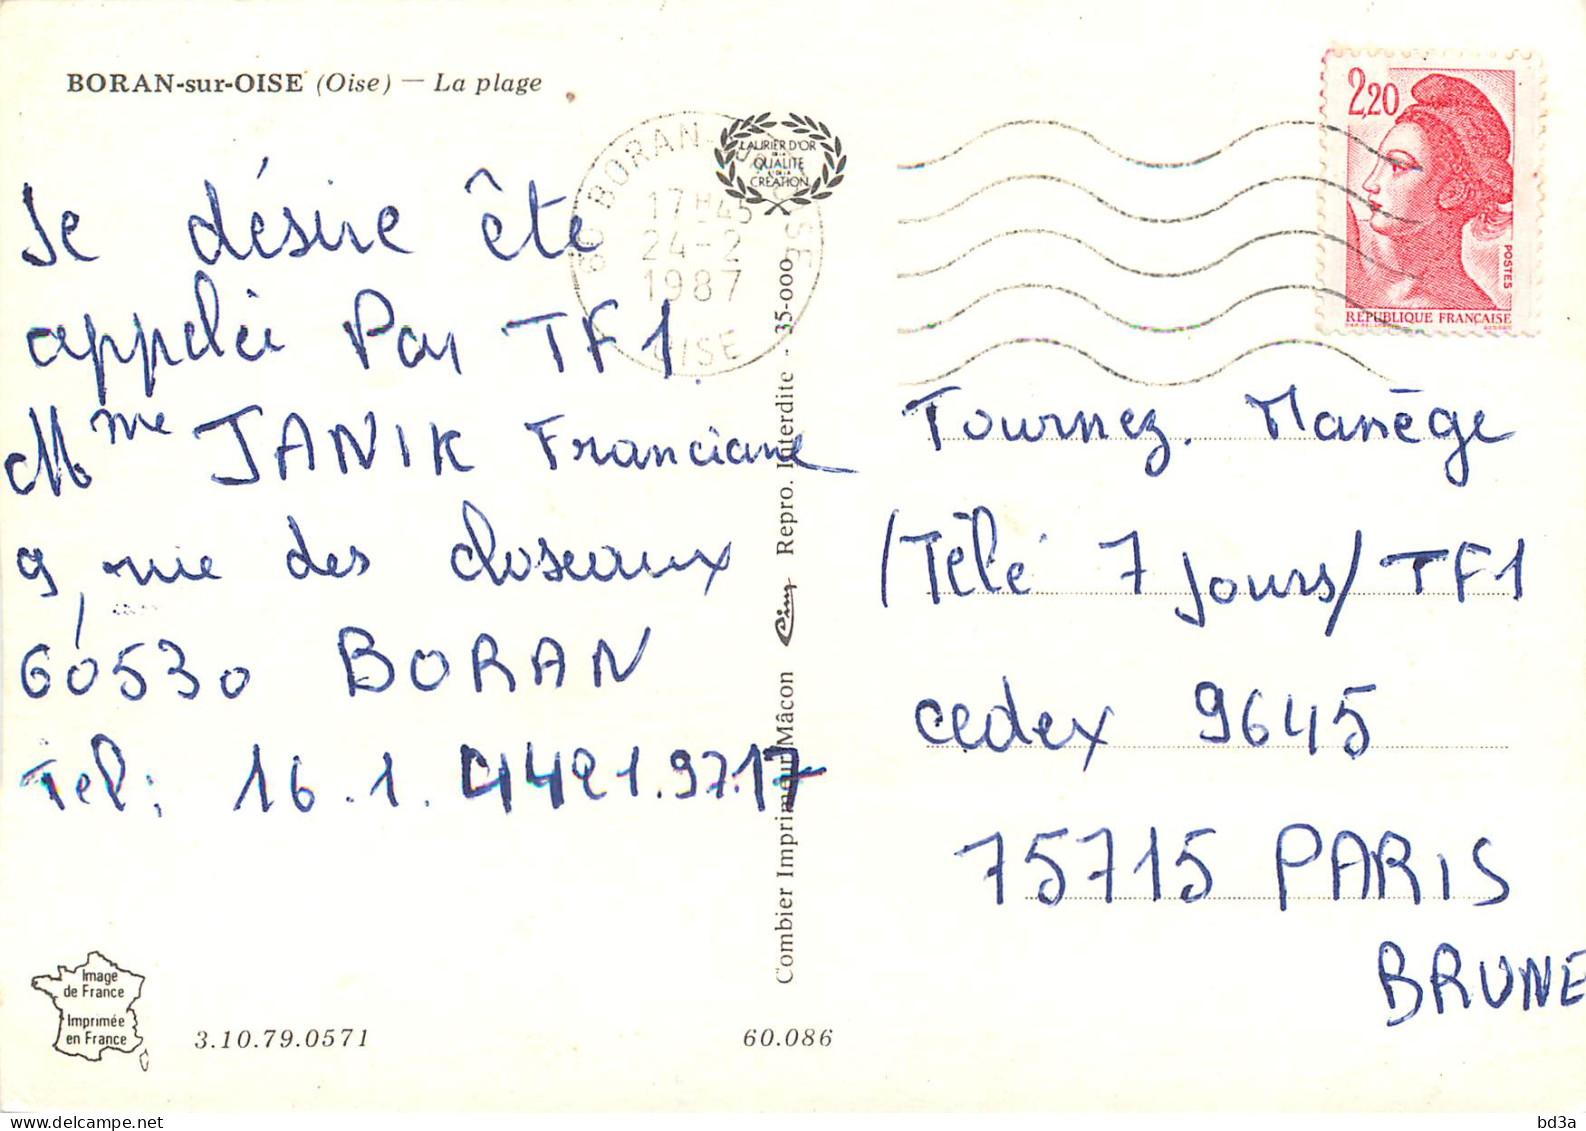 BORAN-sur-OISE (Oise) — La plage
Je désire ête
appelée Par TF1.
Mme JANIK Franciane
9, rue des closeaux
60530 BORAN
Tel: 16.1. 4421.97.17
Image
de France
Imprimée
en France
3.10.79.0571
60.086
60 BORAN-SUR-OISE
17H45
24-2
1987
OISE
LAURIER D'OR
DE LA
QUALITE
ET DE LA
CREATION
Combier Imprimeur Mâcon Cim Repro. Interdite - 35-000
2,20
POSTES
REPUBLIQUE FRANÇAISE
Tournez. Manège
/Télé 7 jours/ TF1
cedex 9645
75715 PARIS
BRUNE
bd3a